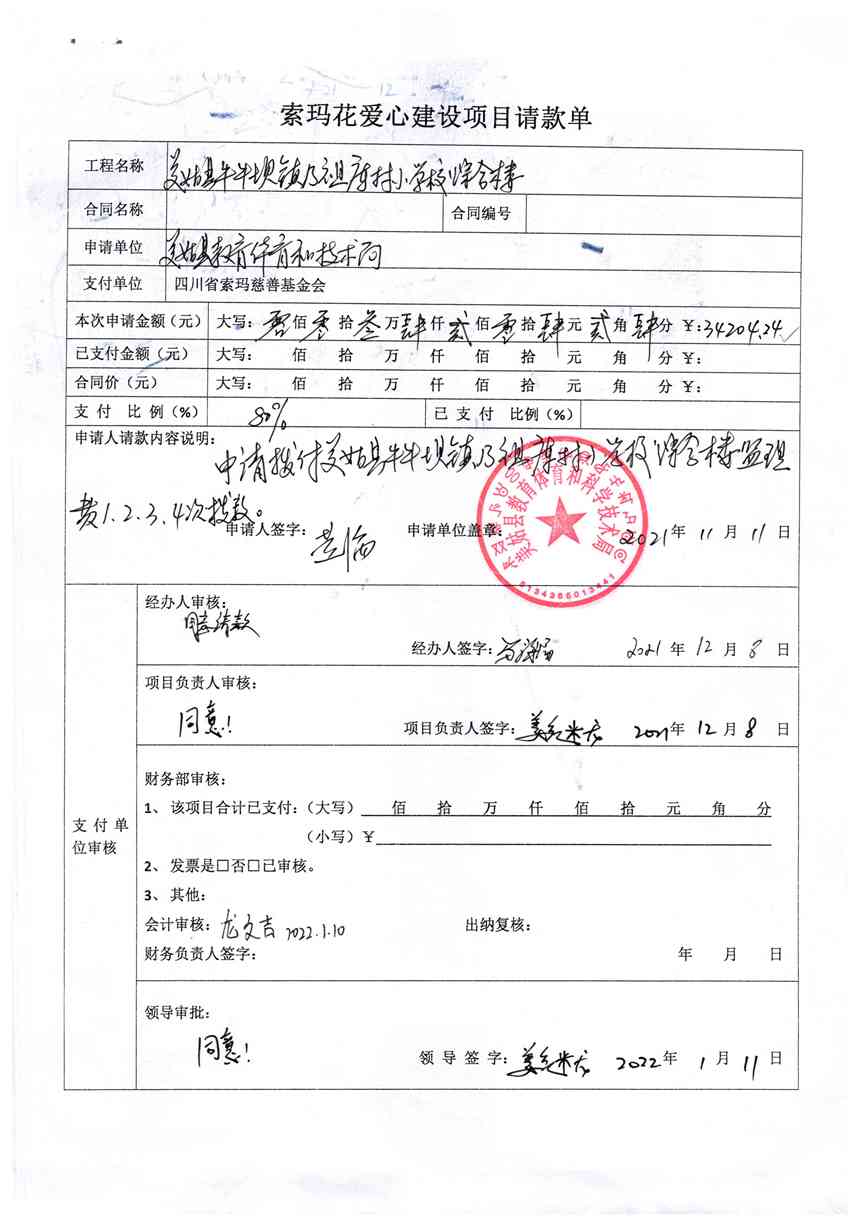 索玛花爱心建设项目请款单
工程名称 美姑县牛牛坝镇乃祖库村小学校综合楼
合同名称 合同编号
申请单位 美姑县教育体育和技术局
支付单位 四川省索玛慈善基金会
本次申请金额（元） 大写： 零 佰 零 拾 叁 万 肆 仟 贰 佰 零 拾 肆 元 贰 角 肆 分 ￥:34204.24
已支付金额（元） 大写： 佰 拾 万 仟 佰 拾 元 角 分 ￥:
合同价（元） 大写： 佰 拾 万 仟 佰 拾 元 角 分 ￥:
支付 比例（%） 80% 已支付 比例（%）
申请人请款内容说明：
申请拨付美姑县牛牛坝镇乃祖库村小学校综合楼监理
费1.2.3.4次拨款。
申请人签字： 申请单位盖章： 2021年 11 月 11 日
美姑县教育体育和科学技术局
5134366013441
支付单位审核
经办人审核：
同意请款
经办人签字： 2021 年 12 月 8 日
项目负责人审核：
同意!
项目负责人签字： 2021年 12 月 8 日
财务部审核：
1、 该项目合计已支付：（大写） 佰 拾 万 仟 佰 拾 元 角 分
（小写）￥
2、 发票是□否□已审核。
3、 其他：
会计审核： 龙文吉 2022.1.10 出纳复核：
财务负责人签字： 年 月 日
领导审批：
同意!
领导签字： 2022年 1 月 11 日